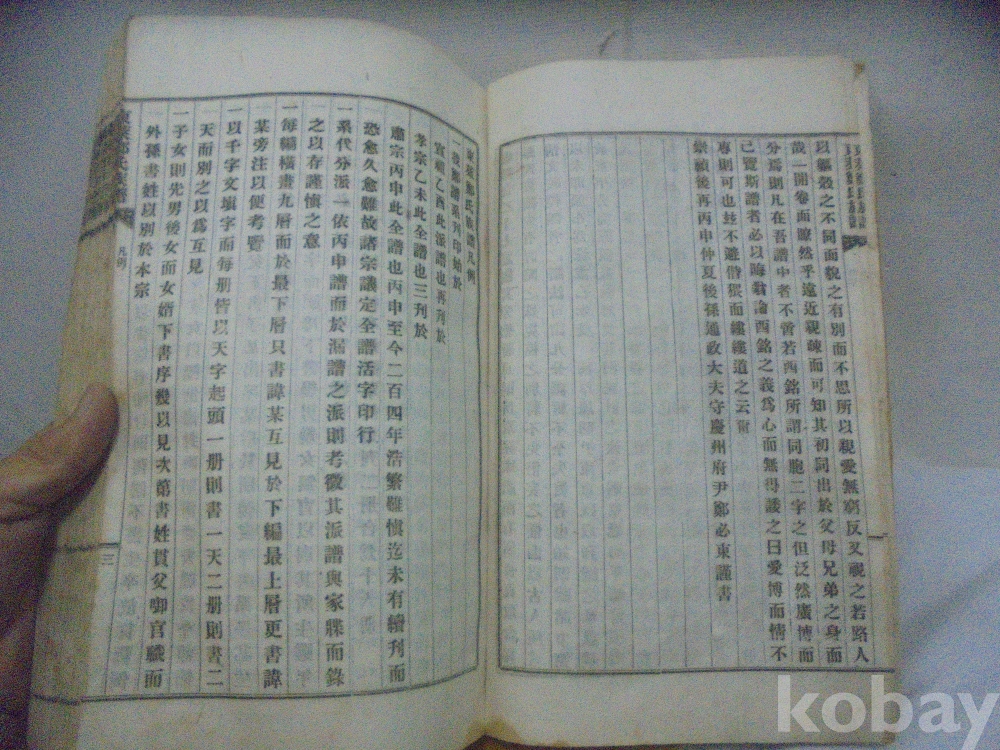 以軀殼之不同面貌之有別而不思所以親愛無窮反又視之若路人
哉一開卷面瞭然乎遠近親疎而可知其初同出於父母兄弟之身而
分焉則凡在吾譜中者不啻若西銘所謂同胞二字之但泛然廣博而
已覽斯譜者必以晦翁論西銘之義爲心而無得議之曰愛博而情不
專則可也玆不避僭猥而縷縷道之云爾
崇禎後再丙申仲夏後孫通政大夫守慶州府尹鄭必東謹書
東萊鄭氏族譜凡例
一我鄭譜系刊印始於
宣祖乙酉此派譜也再刊於
孝宗乙未此全譜也三刊於
肅宗丙申此全譜也丙申至今二百四年浩繁難愼迄未有續刊而
恐愈久愈難故諸宗議定全譜活字印行
一系代分派一依丙申譜而於漏譜之派則考徵其派譜與家牒而錄
之以存謹愼之意
一每編橫畫九層而於最下層只書諱某互見於下編最上層更書諱
某旁注以便考覽
一以千字文塡字而每册皆以天字起頭一册則書一天二册則書二
天而別之以爲互見
一子女則先男後女而女婿下書序幾以見次第書姓貫父啣官職而
外孫書姓以別於本宗
凡例
三
kobay